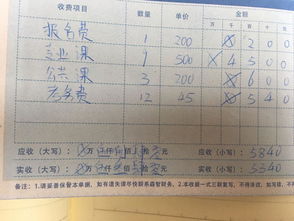 收费项目 数量 单价 金额
万 千 百 十 元
报名费 1 200 ⊗ 2 0 0
专业课 9 500 ⊗ 4 5 0 0
公共课 3 200 ⊗ 6 0 0
考务费 12 45 ⊗ 5 4 0
应收（大写）： 万 伍仟 佰 拾 元 应收（小写）： 5840
实收（大写）： 万 伍仟 佰 拾 元 实收（小写）： 5340
备注：1.请妥善保管本单据，如有遗失请尽快联系森智财务。2.本收据一式三联复写，不得涂改，